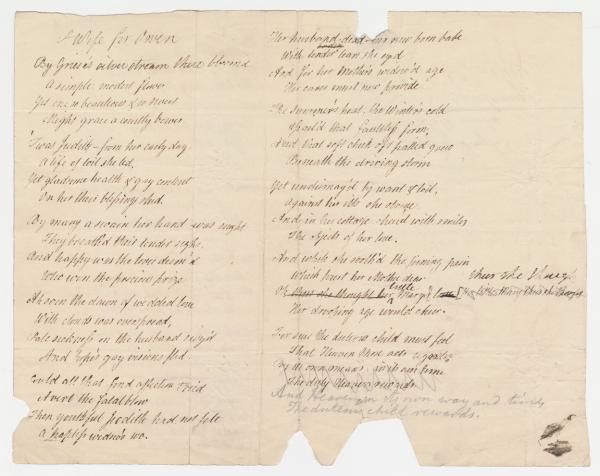 A Wife for Owen
By Gracie's silver stream there bloom'd
A simple modest flower
Yet one so beauteous & so sweet
Might grace a courtly bower
'Twas Judith - from her early day
A life of toil she led,
Yet gladsome health & gay content
On her their blessings shed.
By many a swain her hand was sought
They breath'd their tender sighs.
And happy was the lover deem'd
Who won the precious prize
Ah soon the dawn of wedded love
With clouds was overspread,
Pale sickness on the husband seiz'd
And Hope's gay visions fled
Could all that fond affection tried
Avert the fatal blow
Then youthful Judith had not felt
A hapless widow's wo.
Her husband dead - her new born babe
With tender care she ey'd
And for her Mother's widow'd age
Her cares must now provide
The summer's heat, the Winter's cold
Assail'd that faultless form,
And that soft cheek oft palled grew
Beneath the driving storm
Yet undismay'd by want & toil,
Against her ills she strove
And in her cottage cheer'd with smiles
The objects of her love.
And while she sooth'd the pining pain
Which prest her Mother dear
Oh that she thought her little Margt
Thus she thought
Her drooping age would cheer.
For sure the duteous child must feel
That Heaven those acts regards
By its own means - in its own time
The duty Heaven rewards
And Heaven in its own way and time,
The duteous child rewards.